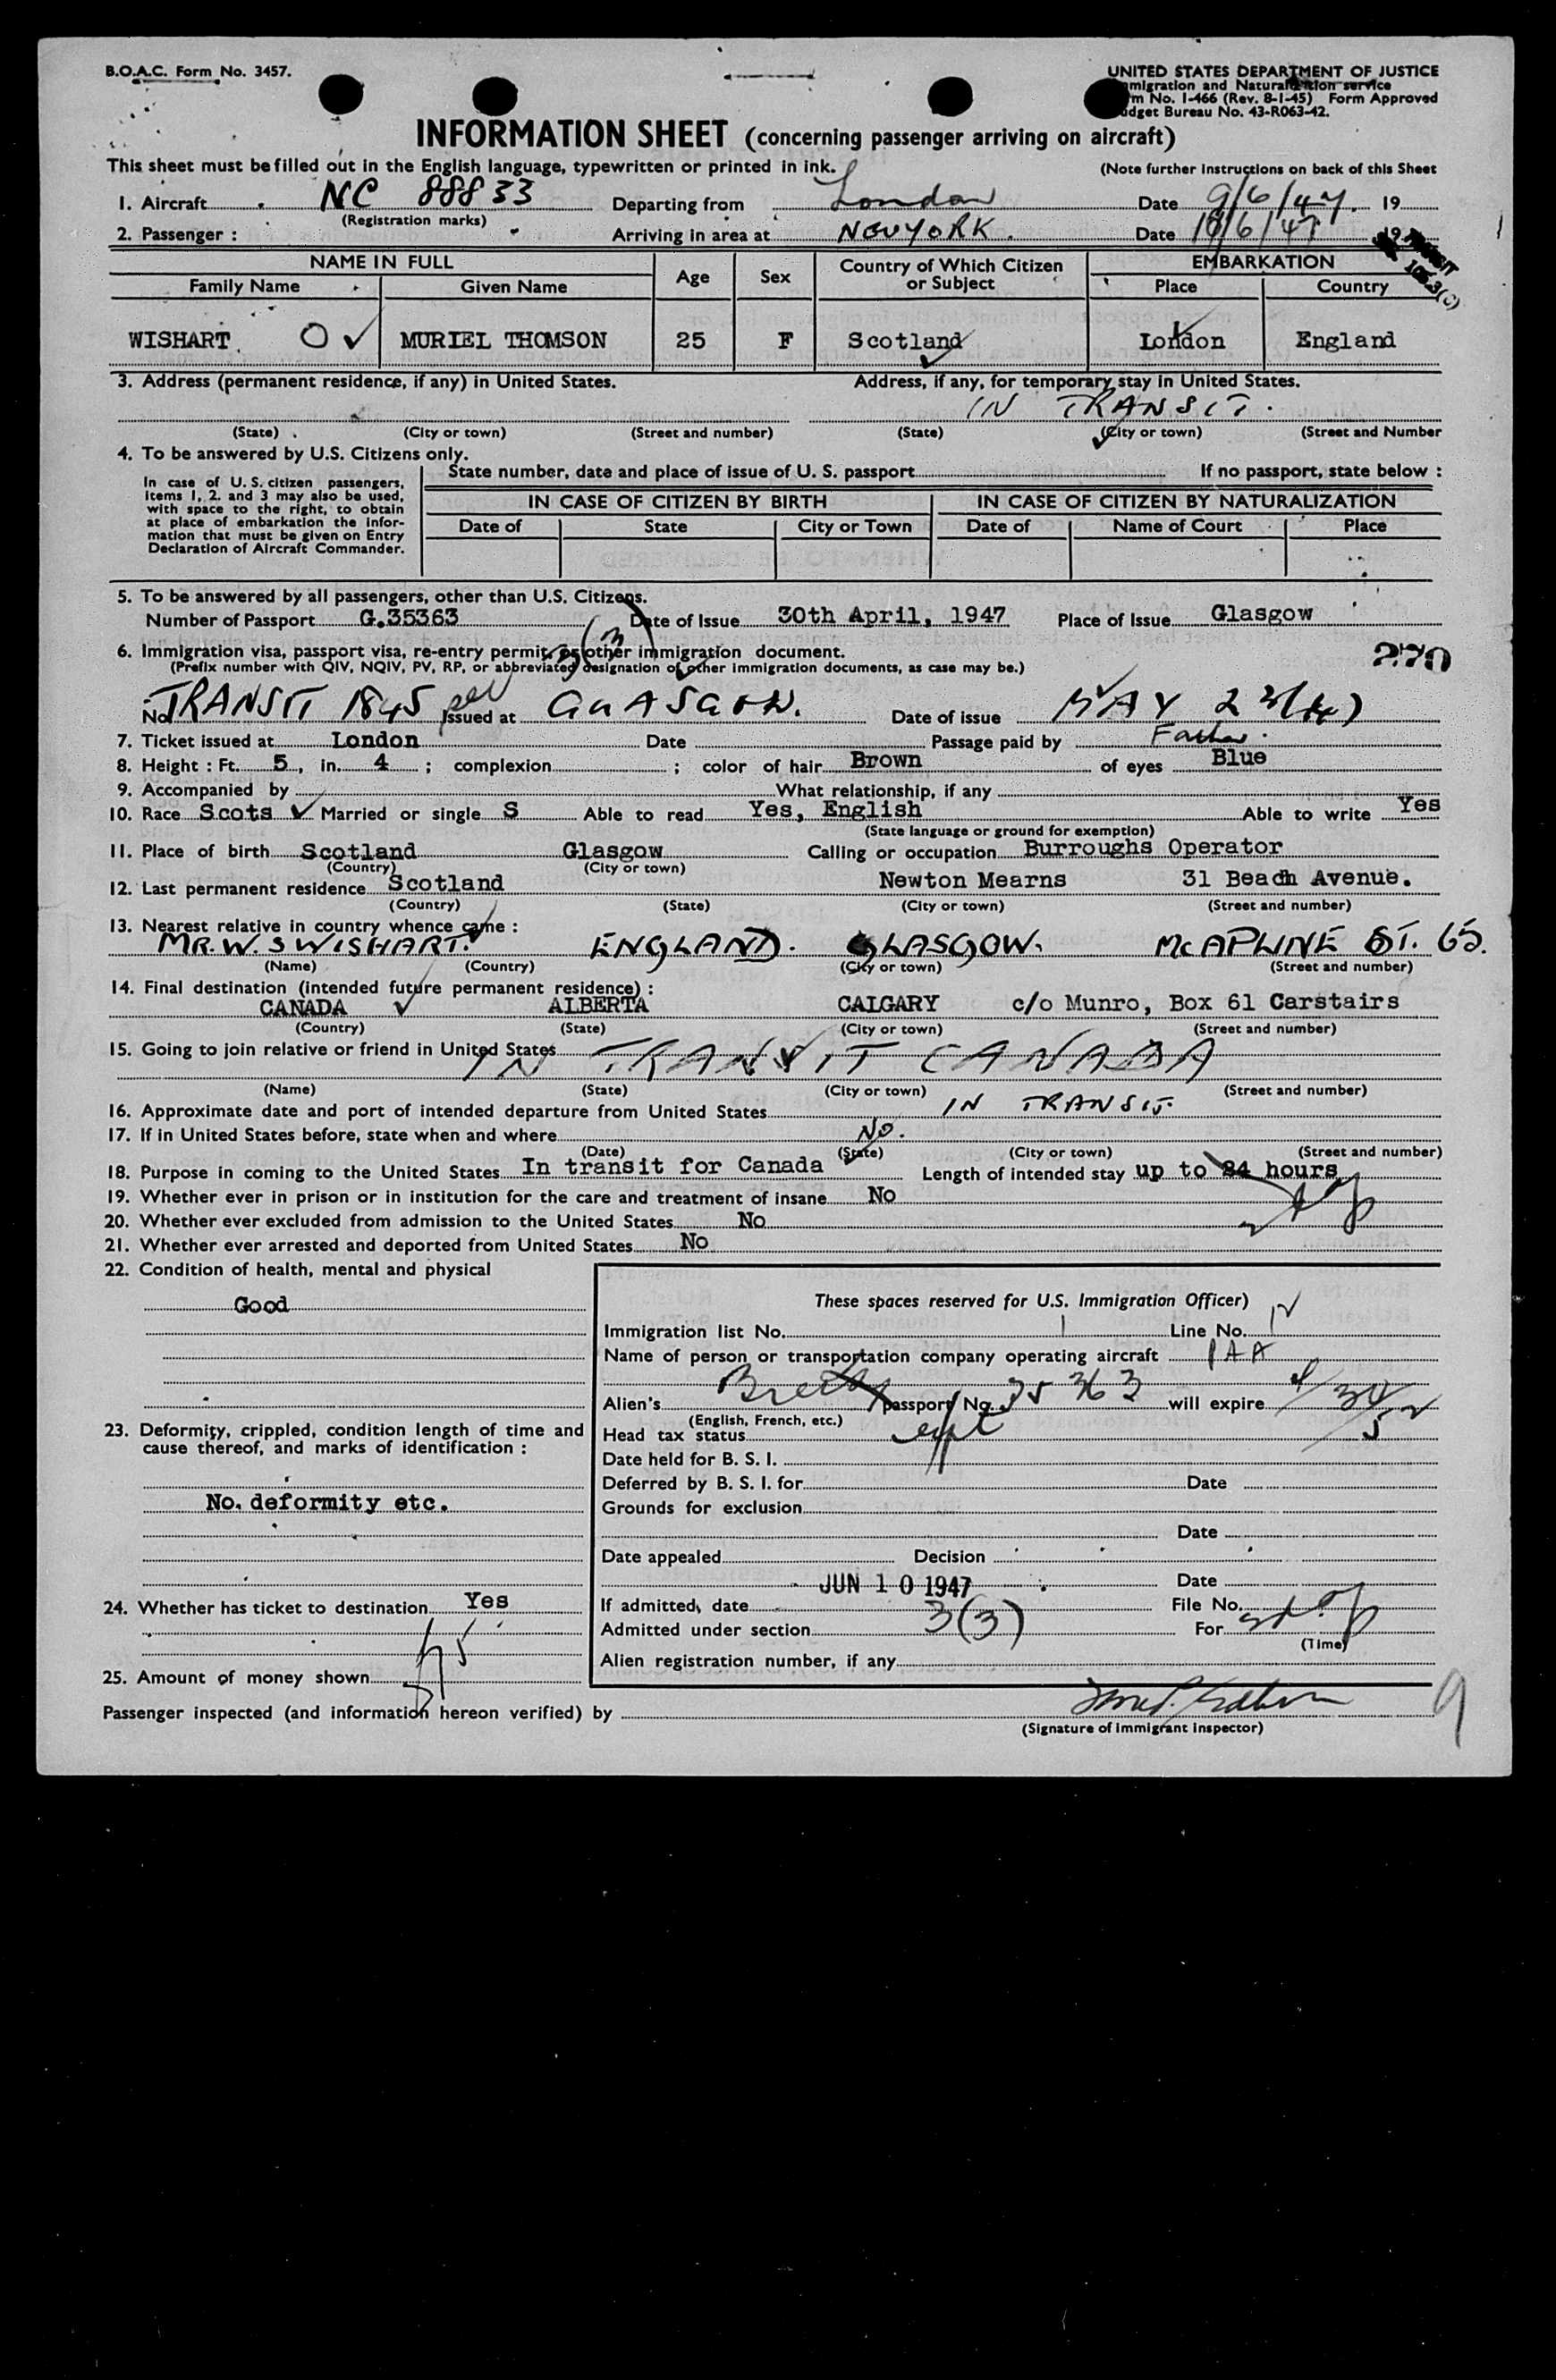 B.O.A.C. Form No. 3457.
UNITED STATES DEPARTMENT OF JUSTICE
migration and Naturalization service
m No. I-466 (Rev. 8-1-45) Form Approved
udget Bureau No. 43-R063-42.
INFORMATION SHEET (concerning passenger arriving on aircraft)
This sheet must be filled out in the English language, typewritten or printed in ink.
(Note further instructions on back of this Sheet
1. Aircraft NC 88833 Departing from London Date 9/6/47. 19
(Registration marks)
2. Passenger : Arriving in area at NEW YORK. Date 10/6/47 19
NAME IN FULL Age Sex Country of Which Citizen or Subject EMBARKATION
Family Name Given Name Place Country
WISHART MURIEL THOMSON 25 F Scotland London England
3. Address (permanent residence, if any) in United States. Address, if any, for temporary stay in United States.
IN TRANSIT.
(State) (City or town) (Street and number) (State) (City or town) (Street and Number
4. To be answered by U.S. Citizens only.
State number, date and place of issue of U. S. passport If no passport, state below :
In case of U. S. citizen passengers,
items 1, 2. and 3 may also be used,
with space to the right, to obtain
at place of embarkation the infor-
mation that must be given on Entry
Declaration of Aircraft Commander.
IN CASE OF CITIZEN BY BIRTH IN CASE OF CITIZEN BY NATURALIZATION
Date of State City or Town Date of Name of Court Place
5. To be answered by all passengers, other than U.S. Citizens.
Number of Passport G.35363 Date of Issue 30th April, 1947 Place of Issue Glasgow
6. Immigration visa, passport visa, re-entry permit, or other immigration document. 270
(Prefix number with QIV, NQIV, PV, RP, or abbreviated designation of other immigration documents, as case may be.)
No TRANSIT 1845 Issued at GLASGOW. Date of issue MAY 23/47
7. Ticket issued at London Date Passage paid by Father.
8. Height : Ft. 5, in. 4 ; complexion ; color of hair Brown of eyes Blue
9. Accompanied by What relationship, if any
10. Race Scots Married or single S Able to read Yes, English Able to write Yes
(State language or ground for exemption)
11. Place of birth Scotland Glasgow Calling or occupation Burroughs Operator
(Country) (City or town)
12. Last permanent residence Scotland Newton Mearns 31 Beach Avenue.
(Country) (State) (City or town) (Street and number)
13. Nearest relative in country whence came :
MR. W. S WISHART. ENGLAND. GLASGOW. McAPLINE ST. 65.
(Name) (Country) (City or town) (Street and number)
14. Final destination (intended future permanent residence) :
CANADA ALBERTA CALGARY c/o Munro, Box 61 Carstairs
(Country) (State) (City or town) (Street and number)
15. Going to join relative or friend in United States
IN TRANSIT CANADA
(Name) (State) (City or town) (Street and number)
16. Approximate date and port of intended departure from United States IN TRANSIT.
17. If in United States before, state when and where No.
(Date) (State) (City or town) (Street and number)
18. Purpose in coming to the United States In transit for Canada Length of intended stay up to 24 hours
19. Whether ever in prison or in institution for the care and treatment of insane No
20. Whether ever excluded from admission to the United States No
21. Whether ever arrested and deported from United States No
22. Condition of health, mental and physical
Good
These spaces reserved for U.S. Immigration Officer)
Immigration list No. 1 Line No. 12
Name of person or transportation company operating aircraft PAA
Alien's passport No. 35363 will expire 4/30/52
(English, French, etc.)
23. Deformity, crippled, condition length of time and
cause thereof, and marks of identification :
No. deformity etc.
Head tax status
Date held for B. S. I.
Deferred by B. S. I. for Date
Grounds for exclusion
Date
Date appealed Decision
JUN 10 1947 Date
24. Whether has ticket to destination Yes
If admitted, date File No.
Admitted under section 3(3) For
(Time)
Alien registration number, if any
25. Amount of money shown
Passenger inspected (and information hereon verified) by
(Signature of immigrant inspector)
9